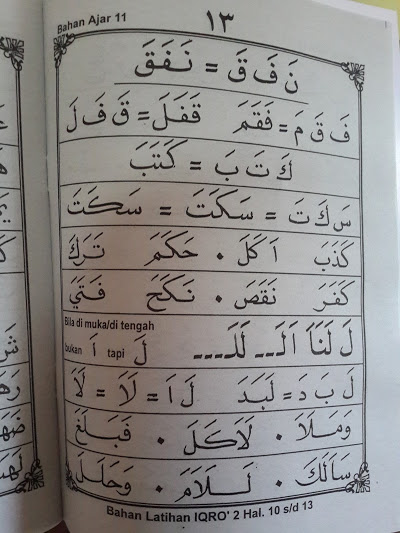 Bahan Ajar 11
١٣
نَ فَ قَ = نَفَقَ
فَ قَ مَ = فَقَمَ قَفَلَ = قَ فَ لَ
كَ تَ بَ = كَتَبَ
سَ كَ تَ = سَكَتَ = سَكَتَ
كَذَبَ اَكَلَ . حَكَمَ تَرَكَ
كَفَرَ نَقَصَ . نَكَحَ فَتَيَ
Bila di muka/di tengah
bukan اَ tapi لَ
لَ بَ دَ = لَبَدَ لَ اَ = لَاَ = لَا
وَمَلَاَ . لَاَكَلَ . فَبَلَغَ
سَاَلَكَ . لَـلَامَ . وَحَلَلَ
Bahan Latihan IQRO' 2 Hal. 10 s/d 13